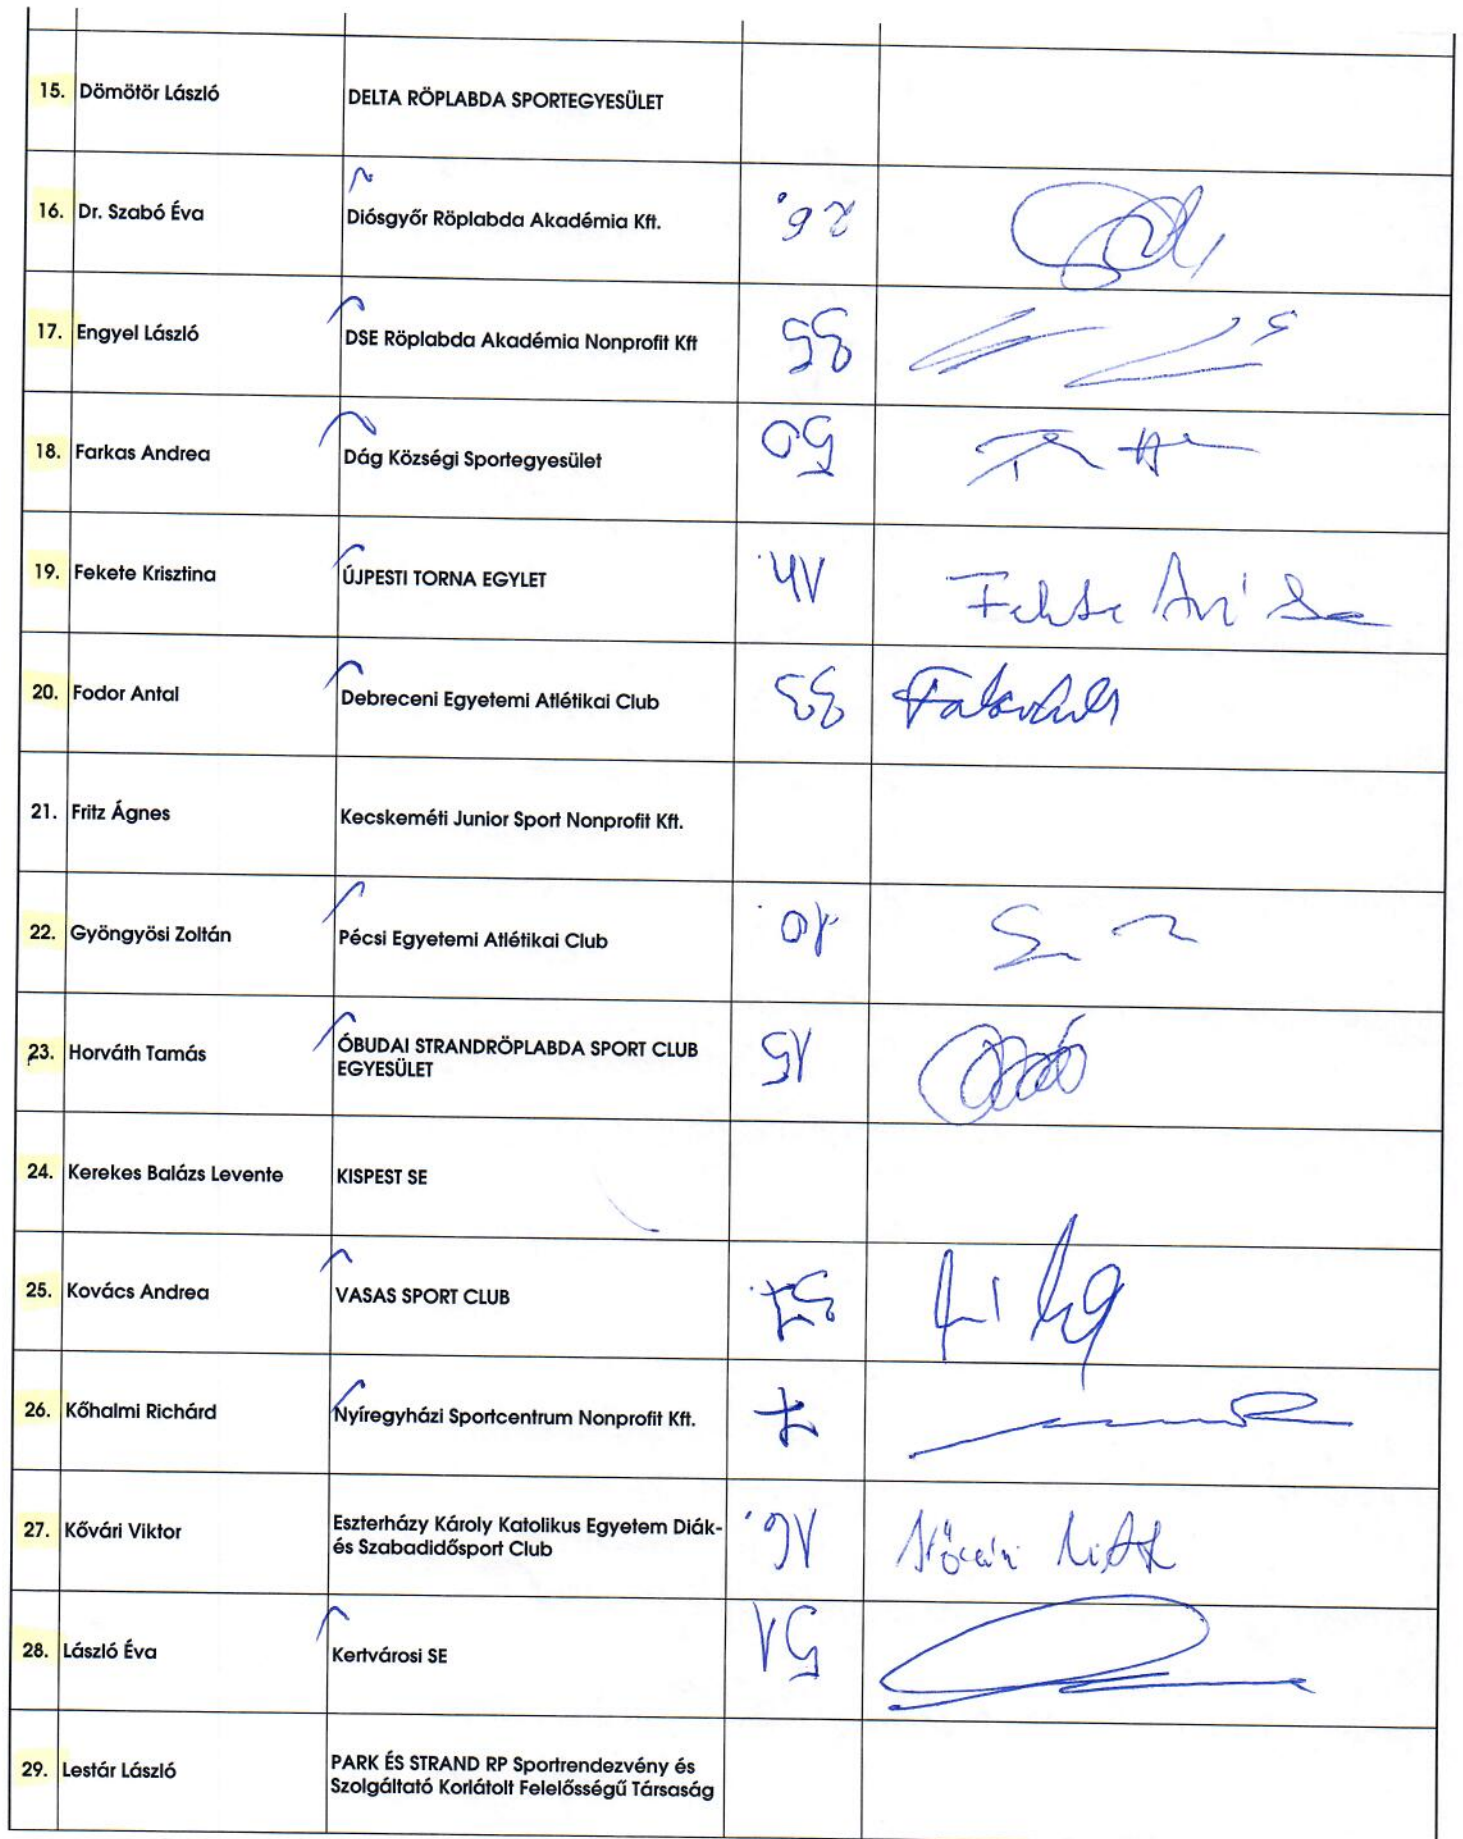 15. Dömötör László DELTA RÖPLABDA SPORTEGYESÜLET
16. Dr. Szabó Éva Diósgyőr Röplabda Akadémia Kft. 26.
17. Engyel László DSE Röplabda Akadémia Nonprofit Kft 35
18. Farkas Andrea Dág Községi Sportegyesület 50
19. Fekete Krisztina ÚJPESTI TORNA EGYLET 14.
20. Fodor Antal Debreceni Egyetemi Atlétikai Club 33
21. Fritz Ágnes Kecskeméti Junior Sport Nonprofit Kft.
22. Gyöngyösi Zoltán Pécsi Egyetemi Atlétikai Club 10.
23. Horváth Tamás ÓBUDAI STRANDRÖPLABDA SPORT CLUB
EGYESÜLET 15
24. Kerekes Balázs Levente KISPEST SE
25. Kovács Andrea VASAS SPORT CLUB 37.
26. Kőhalmi Richárd Nyíregyházi Sportcentrum Nonprofit Kft. 7
27. Kővári Viktor Eszterházy Károly Katolikus Egyetem Diák-
és Szabadidősport Club 16.
28. László Éva Kertvárosi SE 51
29. Lestár László PARK ÉS STRAND RP Sportrendezvény és
Szolgáltató Korlátolt Felelősségű Társaság